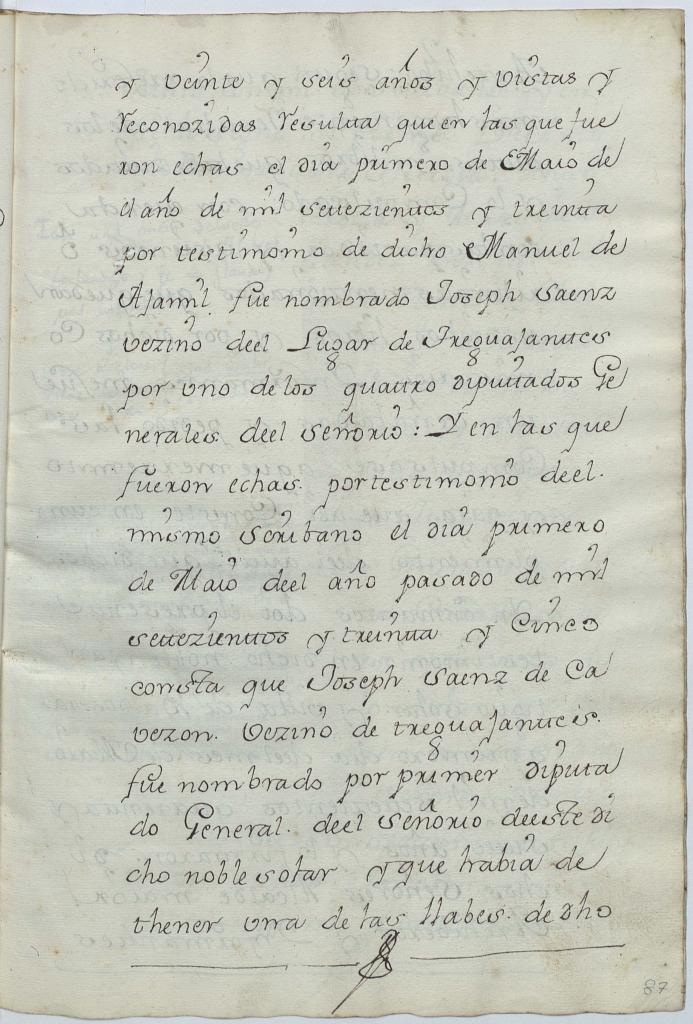 y veinte y seis años y vistas y
Reconozidas Resultta que en las que fue
ron echas el dia primero de Maio de
el año de mil settezienttos y treintta
por testimonio de dicho Manuel de
Ajamil fue nombrado Joseph Saenz
vezino deel Lugar de Treguajanttes
por uno de los quattro diputtados Ge
nerales deel señorio: Y en las que
fueron echas. por testimonio deel.
mismo scribano el dia primero
de Maio deel año pasado de mil
settezienttos y treintta y Cinco
consta que Joseph Saenz de Ca
vezon. Vezino de treguajanttes.
fue nombrado por primer diputa
do General. deel señorio deeste di
cho noble solar y que habia de
thener una de las llabes. de dho
87